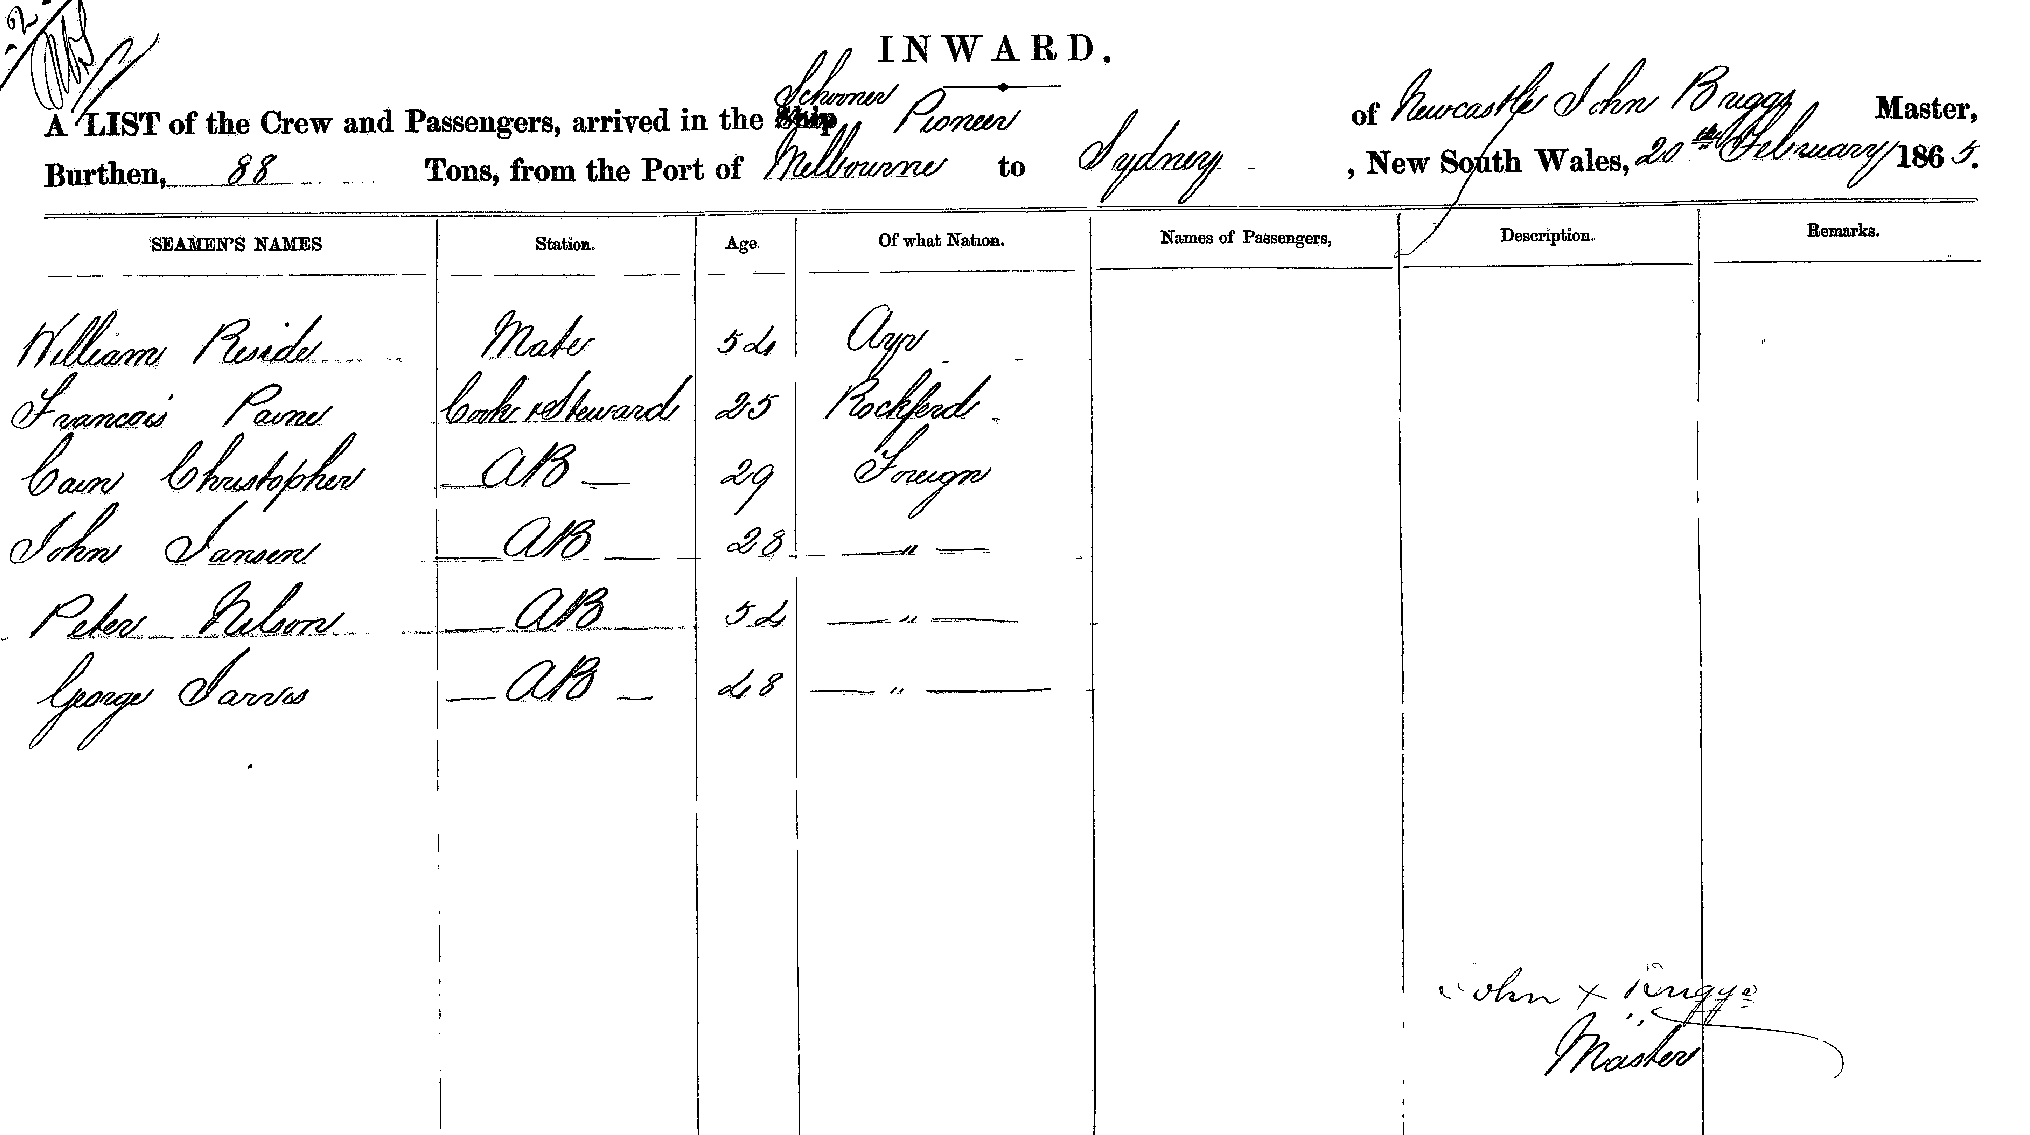 INWARD.
A LIST of the Crew and Passengers, arrived in the Ship Schooner Pioneer of Newcastle John Briggs Master,
Burthen, 88 Tons, from the Port of Melbourne to Sydney, New South Wales, 20th February 1865.
SEAMEN'S NAMES Station. Age. Of what Nation. Names of Passengers, Description. Remarks.
William Reside Mate 54 Ayr
Francois Paine Cook & Steward 25 Rockferd
Cain Christopher AB 29 Foreign
John Jansen AB 28 "
Peter Nelson AB 54 "
George Jarvis AB 48 "
John x Briggs
Master